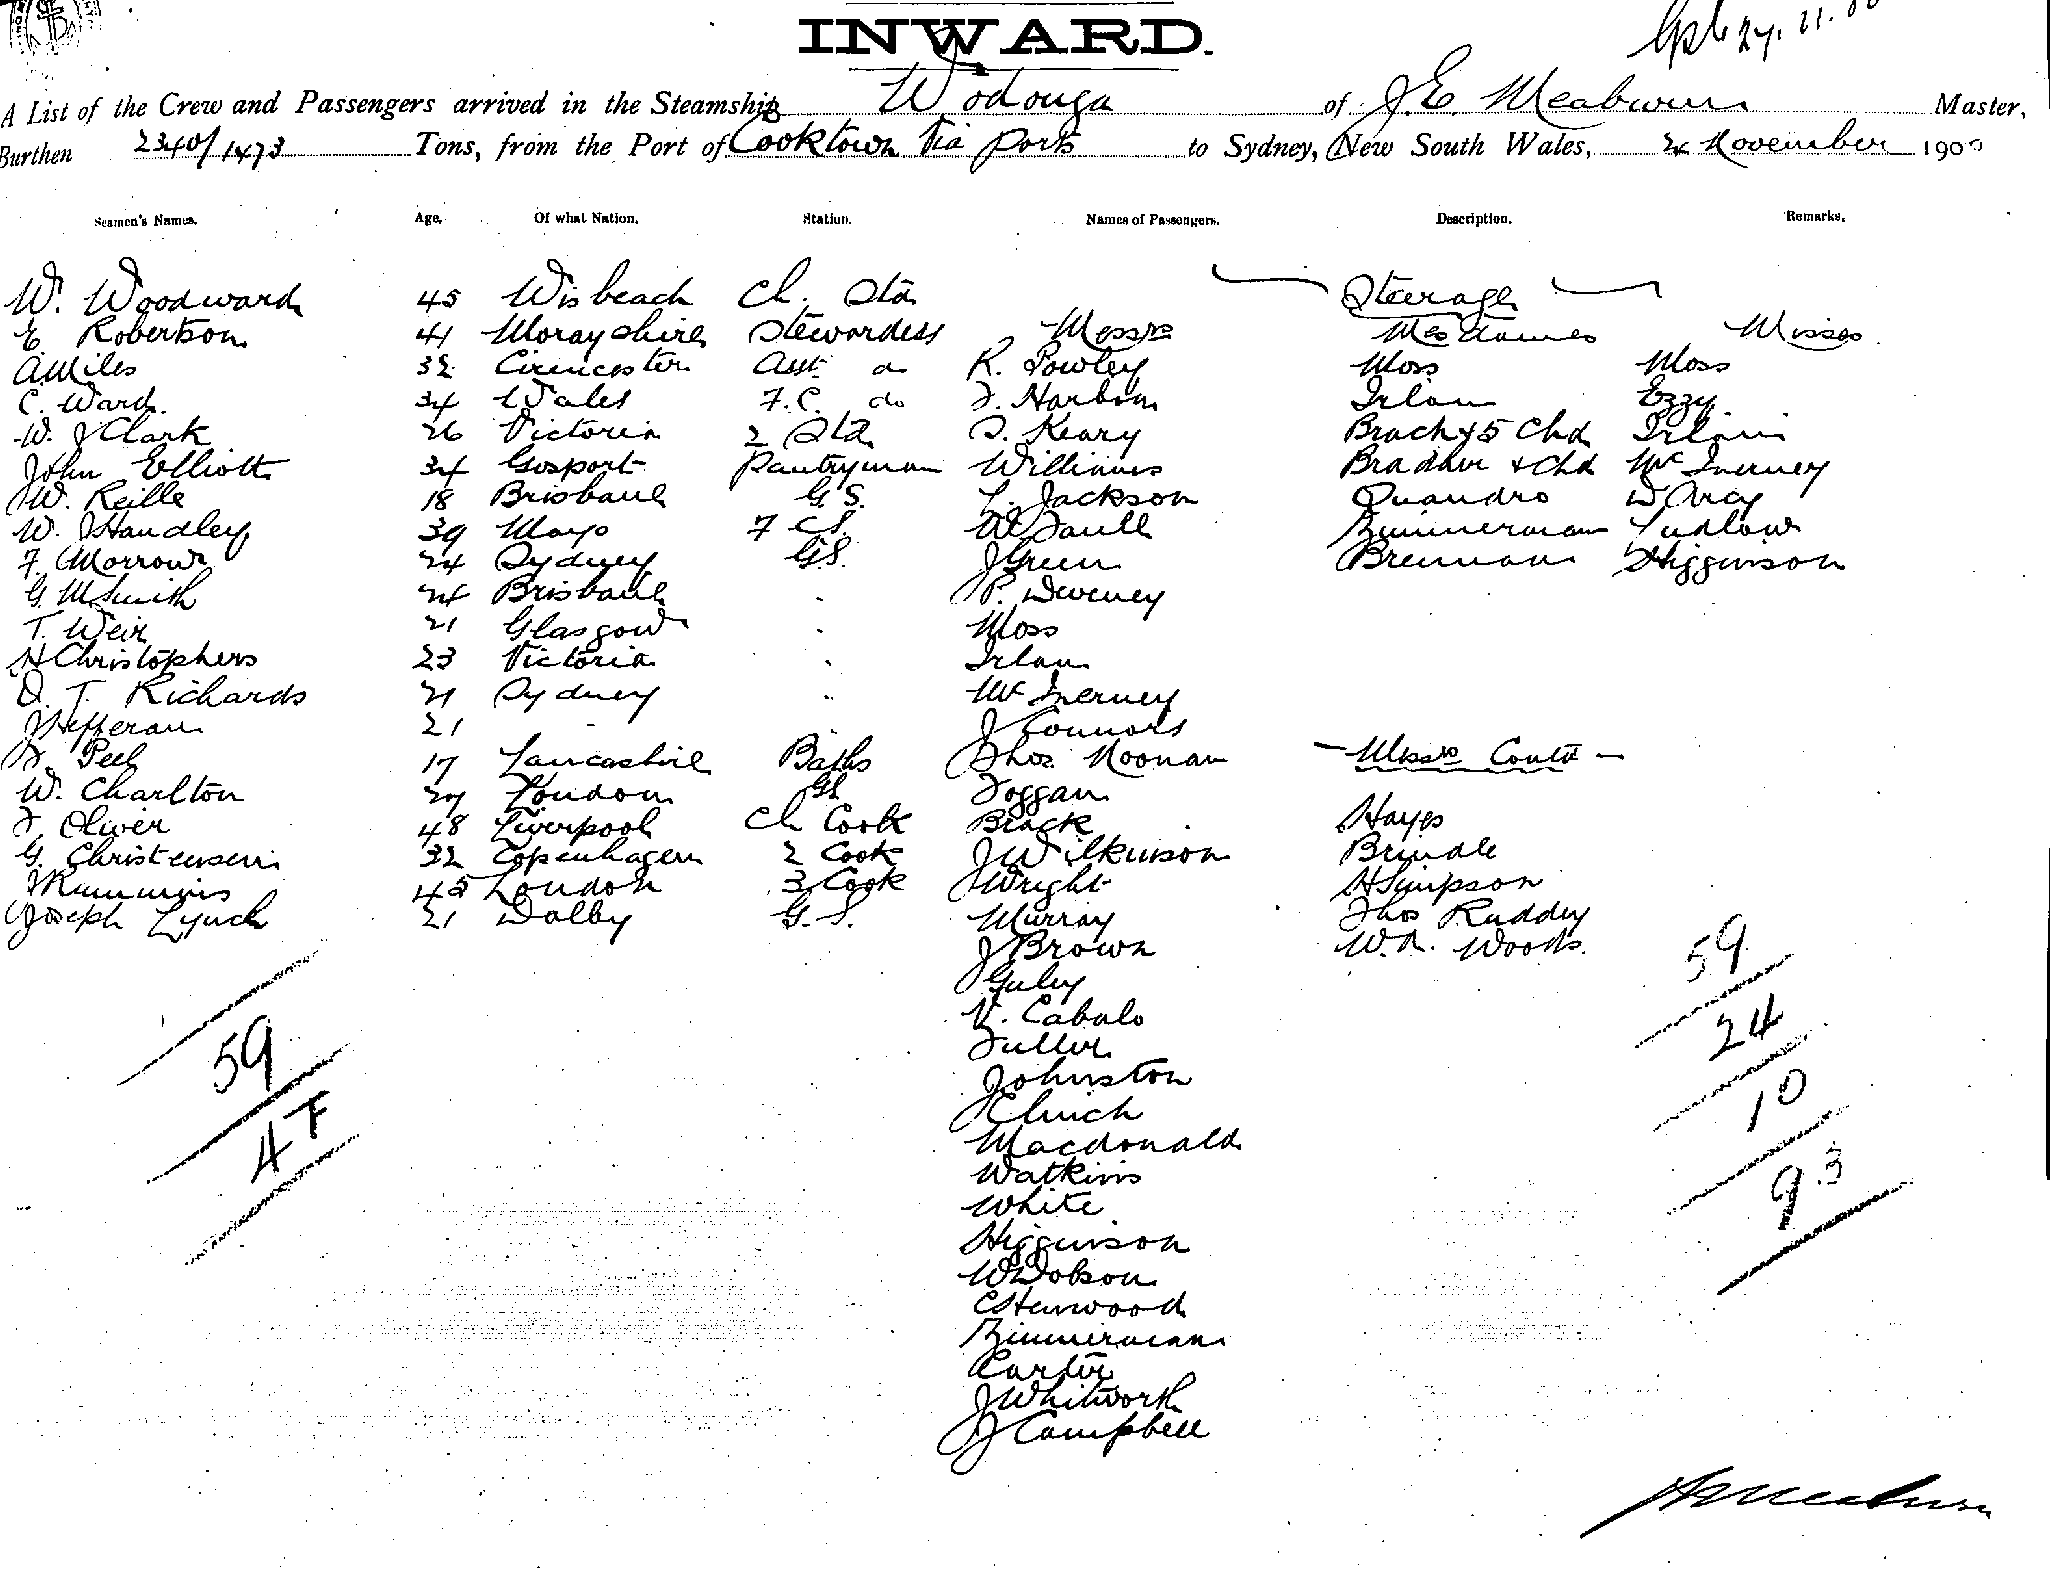 INWARD.
A List of the Crew and Passengers arrived in the Steamship Wodonga of J.E. Meaburn Master,
Burthen 2340/1473 Tons, from the Port of Cooktown Via Ports to Sydney, New South Wales, November 1900
Seamen's Names. Age. Of what Nation. Station. Names of Passengers. Description. Remarks.
W. Woodward 45 Wisbeach Ch. Std Steerage
E Robertson 41 Morayshire Stewardess Messrs Mesdames Misses
A Miles 32 Cirencester Asst do R. Powley Moss Moss
C. Ward. 34 Wales F.C. do F. Harbon Irlam Ezzy
W. J Clark 26 Victoria 2 Std S. Keary Brack & 5 Chd Irlam
John Elliott 34 Gosport Pantryman Williams + Chd McInerney
W. Reille 18 Brisbane G.S. L. Jackson Quandro D'Arcy
W. Handley 39 Mayo F CS. W Saull Zimmerman Ludlow
F. Morrow 24 Sydney GS. J Green Brennan Higginson
G. M Smith 24 Brisbane " P. Deveney
T. Weir 21 Glasgow " Moss
H Christophers 23 Victoria " Irlam
D. T. Richards 21 Sydney " McInerney
J Hefferan 21 " J Connors
J. Peel 17 Lancashire Baths Thos Noonan Messrs Contd
W. Charlton London GS Foggan
F Oliver 48 Liverpool Ch Cook Brack Hayes
G. Christensen 32 Copenhagen 2 Cook J Wilkinson Brindle
J Rummins 45 London 3 Cook J Wright H Simpson
Joseph Lynch 21 Dalby G.S. Murray Thos Ruddy
J Brown W.A. Woods.
59
Guley
V. Cabalo
24
Fuller
59
Johnston
10
J Clinch
47
Macdonald
Watkins
93
White
Higginson
W Dobson
C Henwood
Zimmerman
Carter
J Whitworth
J Campbell
J E Meaburn